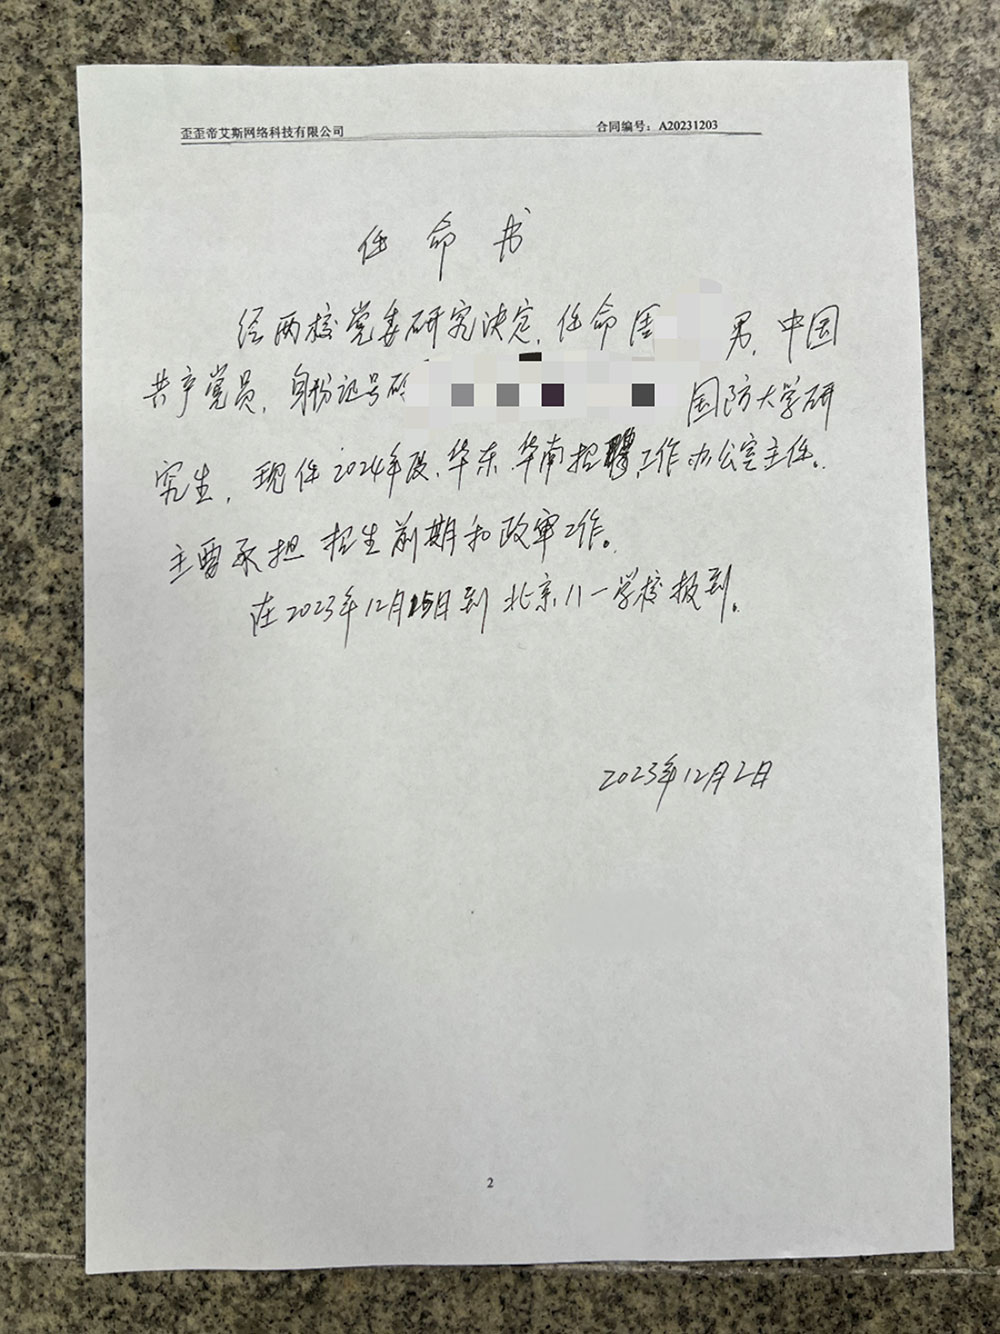 歪歪帝艾斯网络科技有限公司 合同编号：A20231203
任命书
经两校党委研究决定，任命周 男，中国
共产党员，身份证号码 国防大学研
究生，现任2024年度、华东、华南招聘工作办公室主任。
主要承担招生前期和政审工作。
在2023年12月25日到北京八一学校报到。
2023年12月2日
2